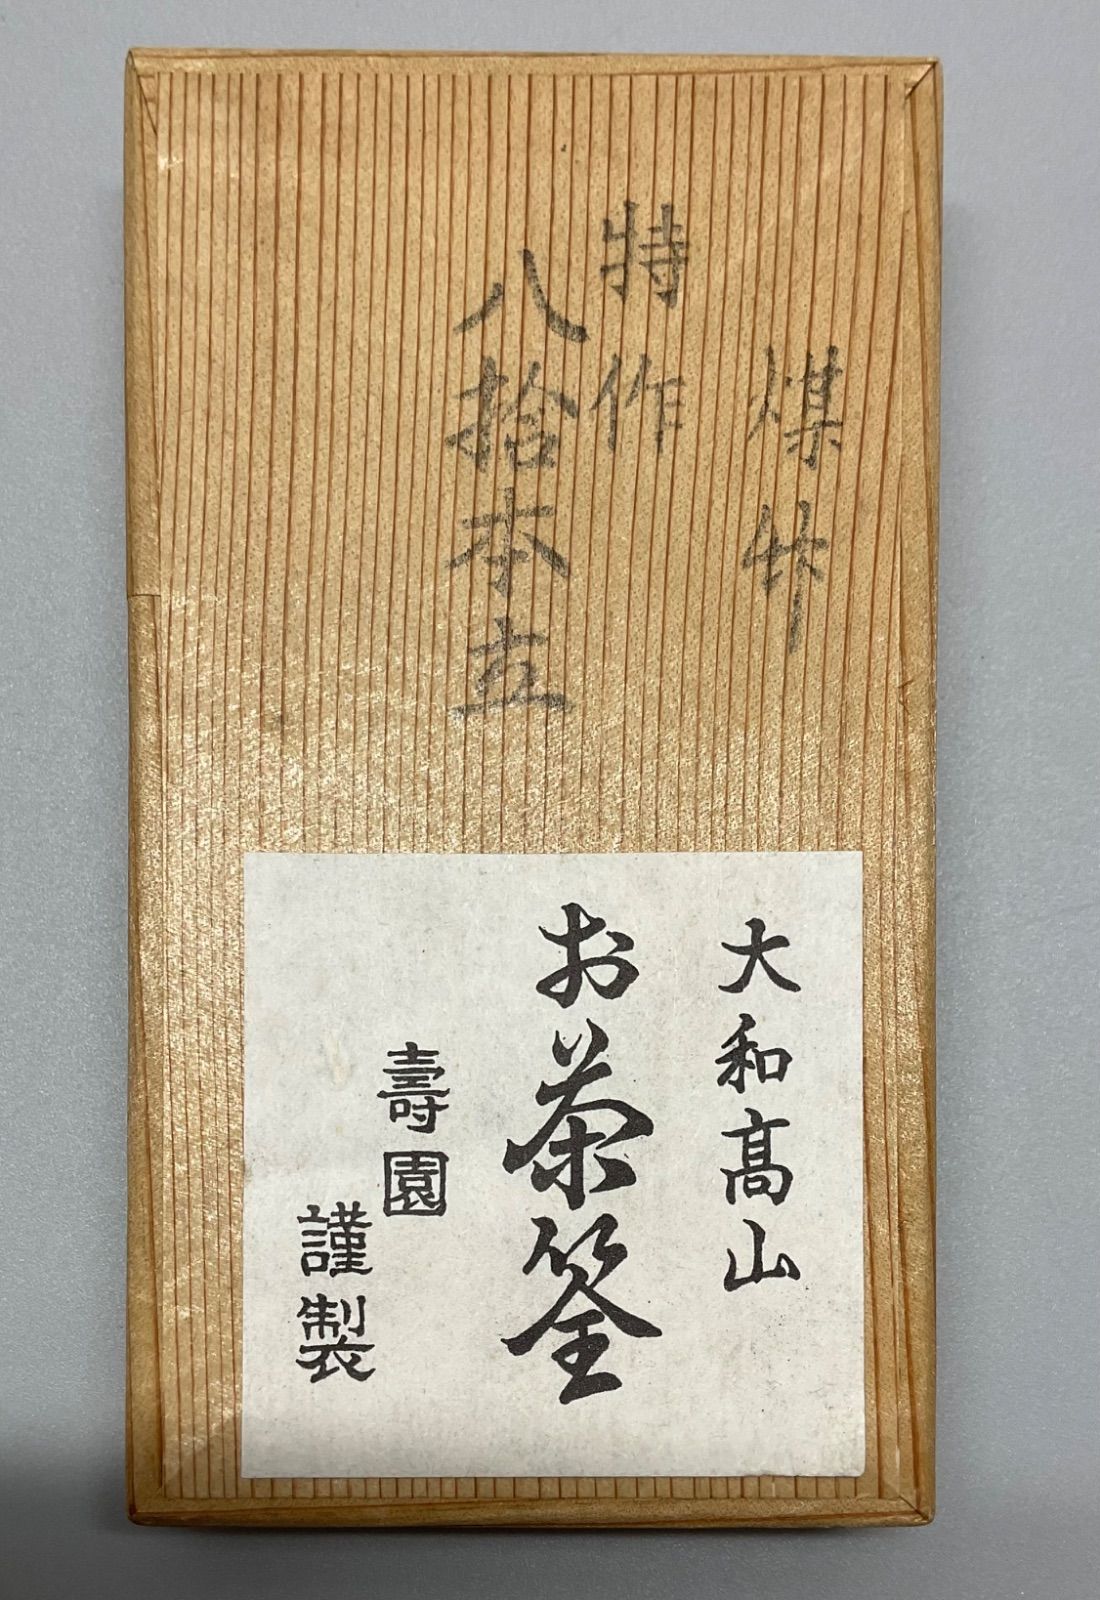 煤竹
特作
八拾本立
大和高山
お茶筌
壽園
謹製